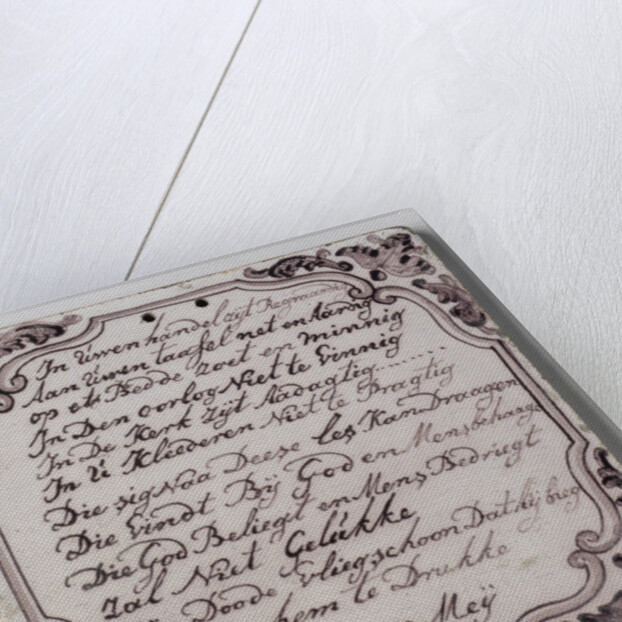 In Uwen handel zijt Regtvaardig
Aan Uwen taafel net en Aardig
op ets Bedde zoet en minnig
In Den oorlog Niet te Einnig
In De Kerk Zijt Aadagtig..........
In U Kleederen Niet te Pragtig
Die sig Naa Deese les Kan Draagen
Die Vindt Bij God en Mens behaage
Die God Beliegt en Mens Bedriegt
Zal Niet Gelukke
Doode Vlieg schoon Dat hij bieg
hem te Drukke
Meÿ